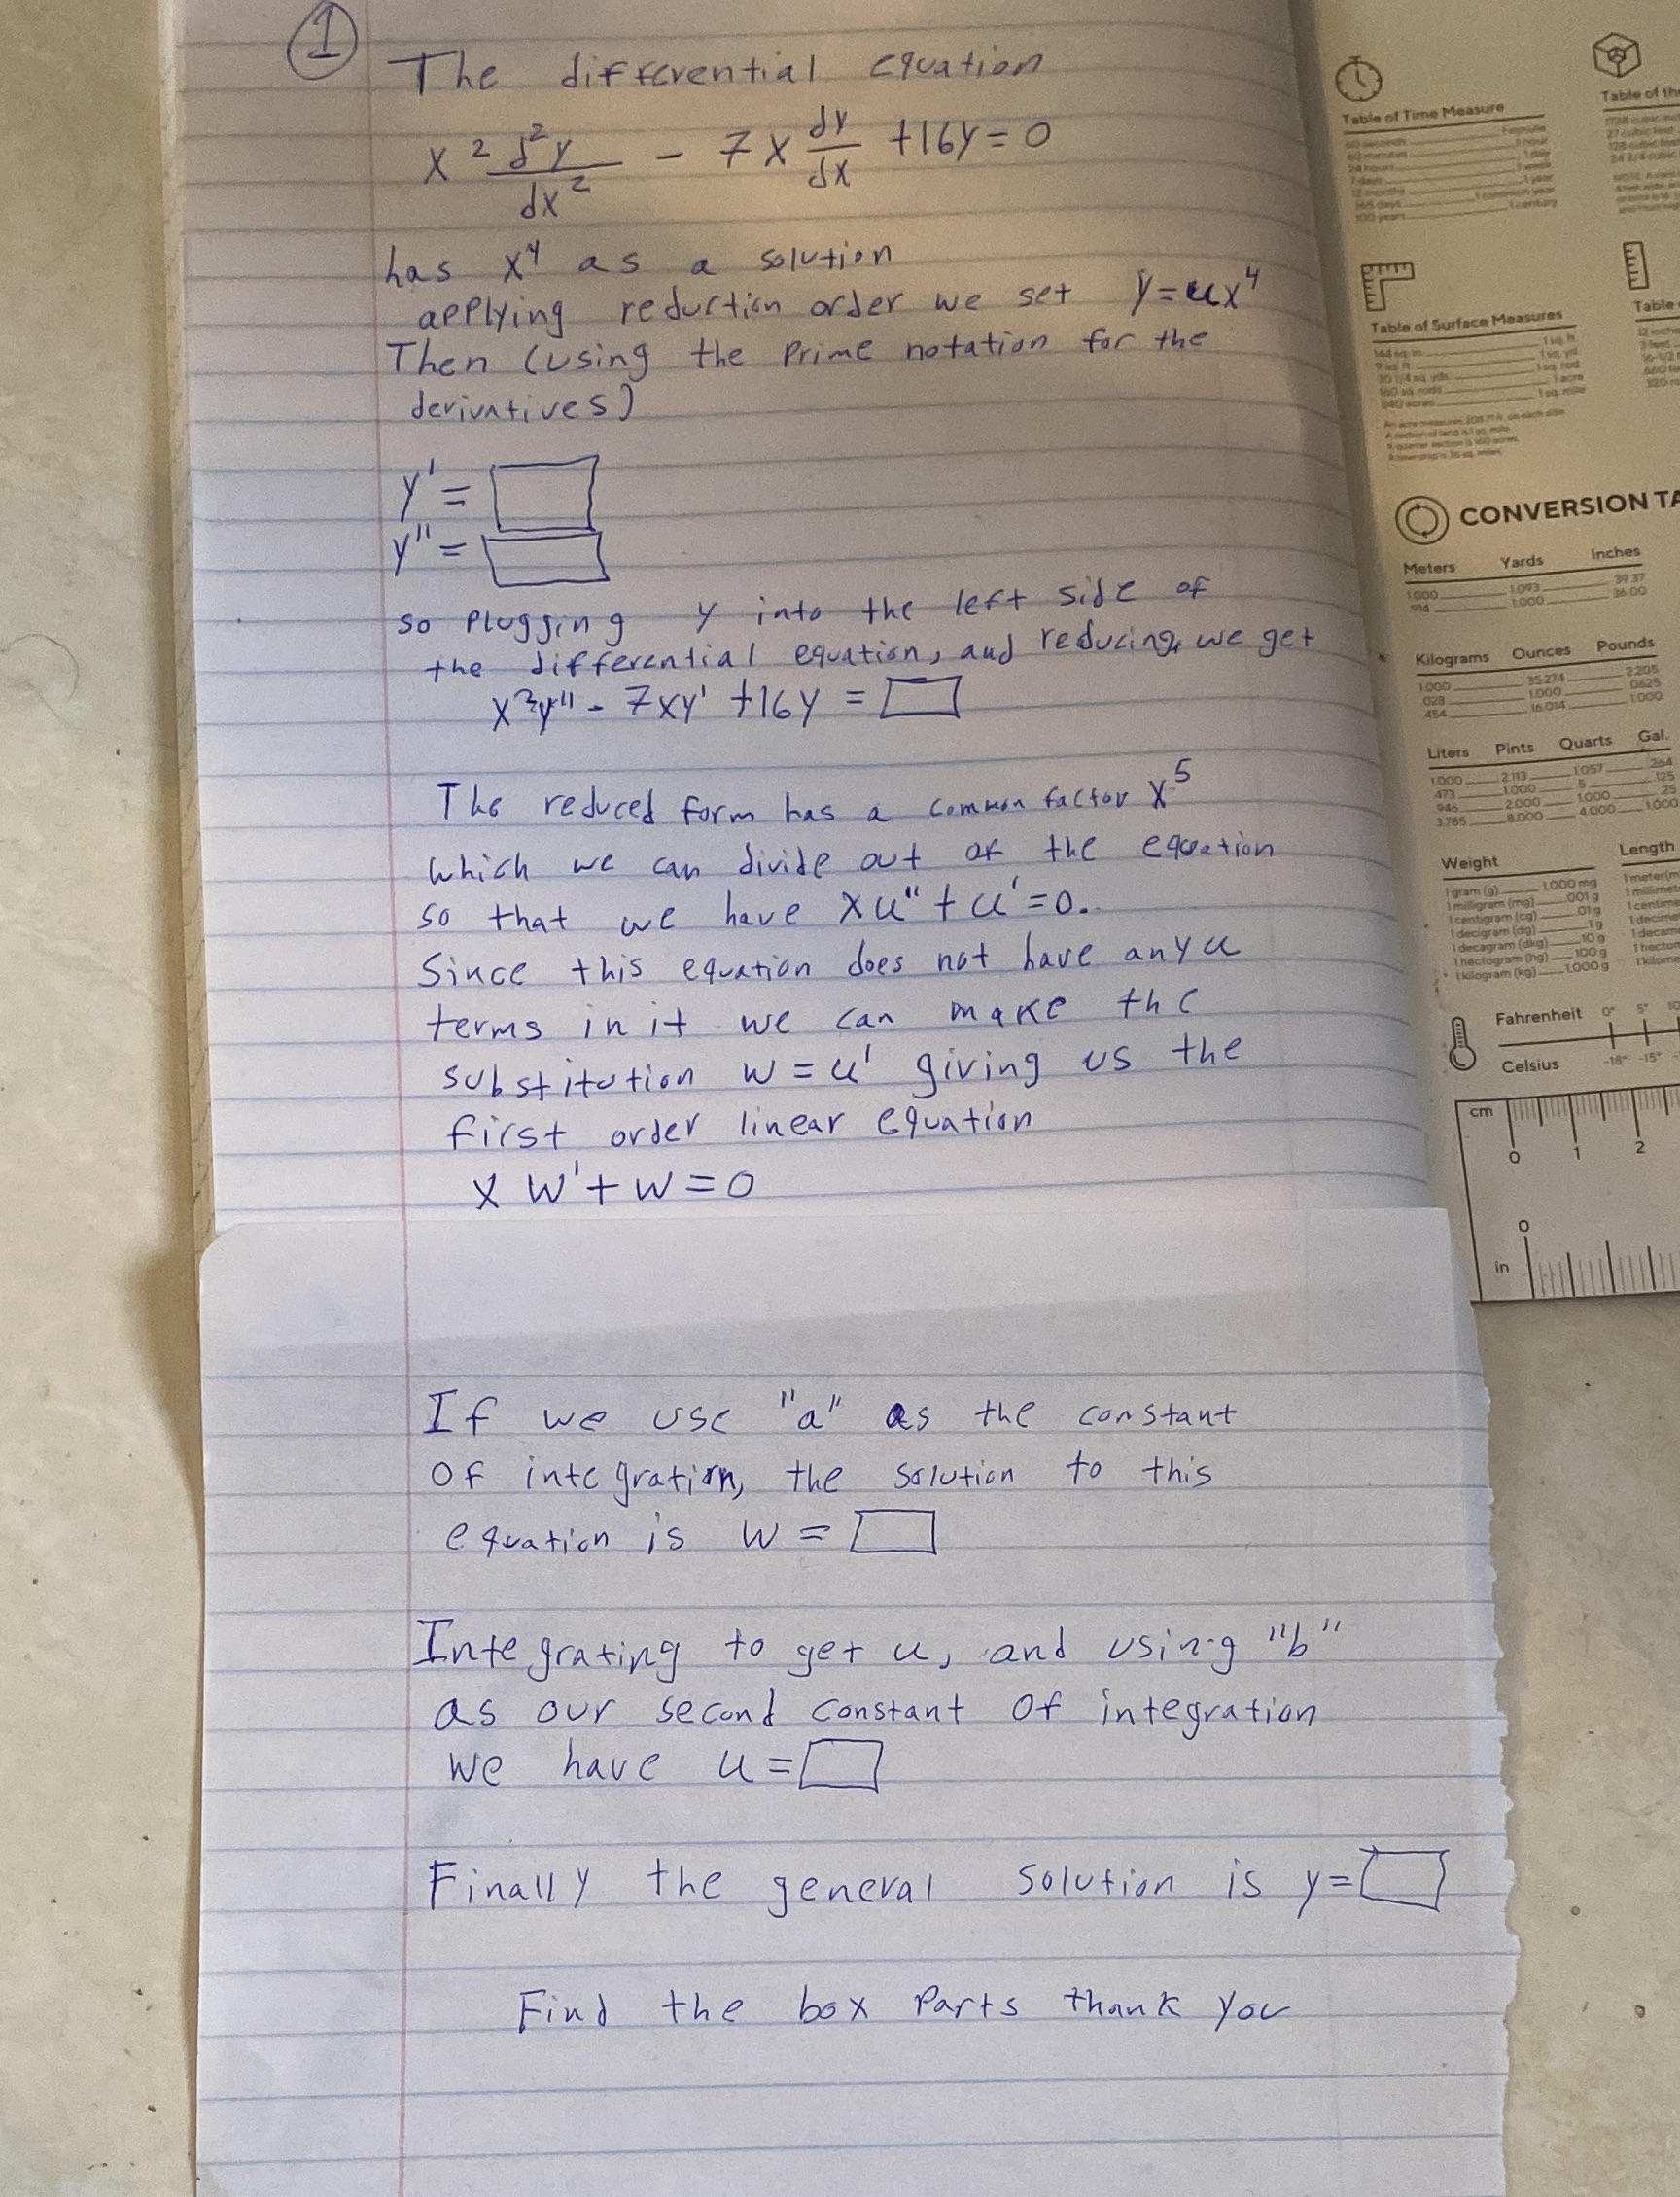 1
The differential equation
x² d²y/dx² - 7x dy/dx +16y=0
has x⁴ as a solution
applying reduction order we set y=ux⁴
Then (using the prime notation for the
derivatives)
y' =
y" =
so plugging y into the left side of
the differential equation, and reducing, we get
x²y" - 7xy' +16y =
The reduced form has a common factor x⁵
which we can divide out of the equation
so that we have xu" + u' =0.
Since this equation does not have any u
terms in it we can make the
substitution w = u' giving us the
first order linear equation
x w' + w = 0
If we use "a" as the constant
of integration, the solution to this
equation is w =
Integrating to get u, and using "b"
as our second constant of integration
we have u =
Finally the general solution is y=
Find the box parts thank you
Table of Time Measure
Table of the
Table of Surface Measures
Table
CONVERSION TA
Meters Yards Inches
1.000 1.093 39.37
.914 1.000 36.00
Kilograms Ounces Pounds
1.000 35.274 2.205
.028 1.000 .0625
.454 16.014 1.000
Liters Pints Quarts Gal.
1.000 2.113 1.057 .264
.473 1.000 .5 .125
.946 2.000 1.000 .25
3.785 8.000 4.000 1.000
Weight
1 gram (g) 1,000 mg
1 milligram (mg) .001 g
1 centigram (cg) .01 g
1 decigram (dg) .1 g
1 decagram (dkg) 10 g
1 hectogram (hg) 100 g
1 kilogram (kg) 1,000 g
Length
Fahrenheit 0° 5°
Celsius -18° -15°
cm
0 1 2
0
in